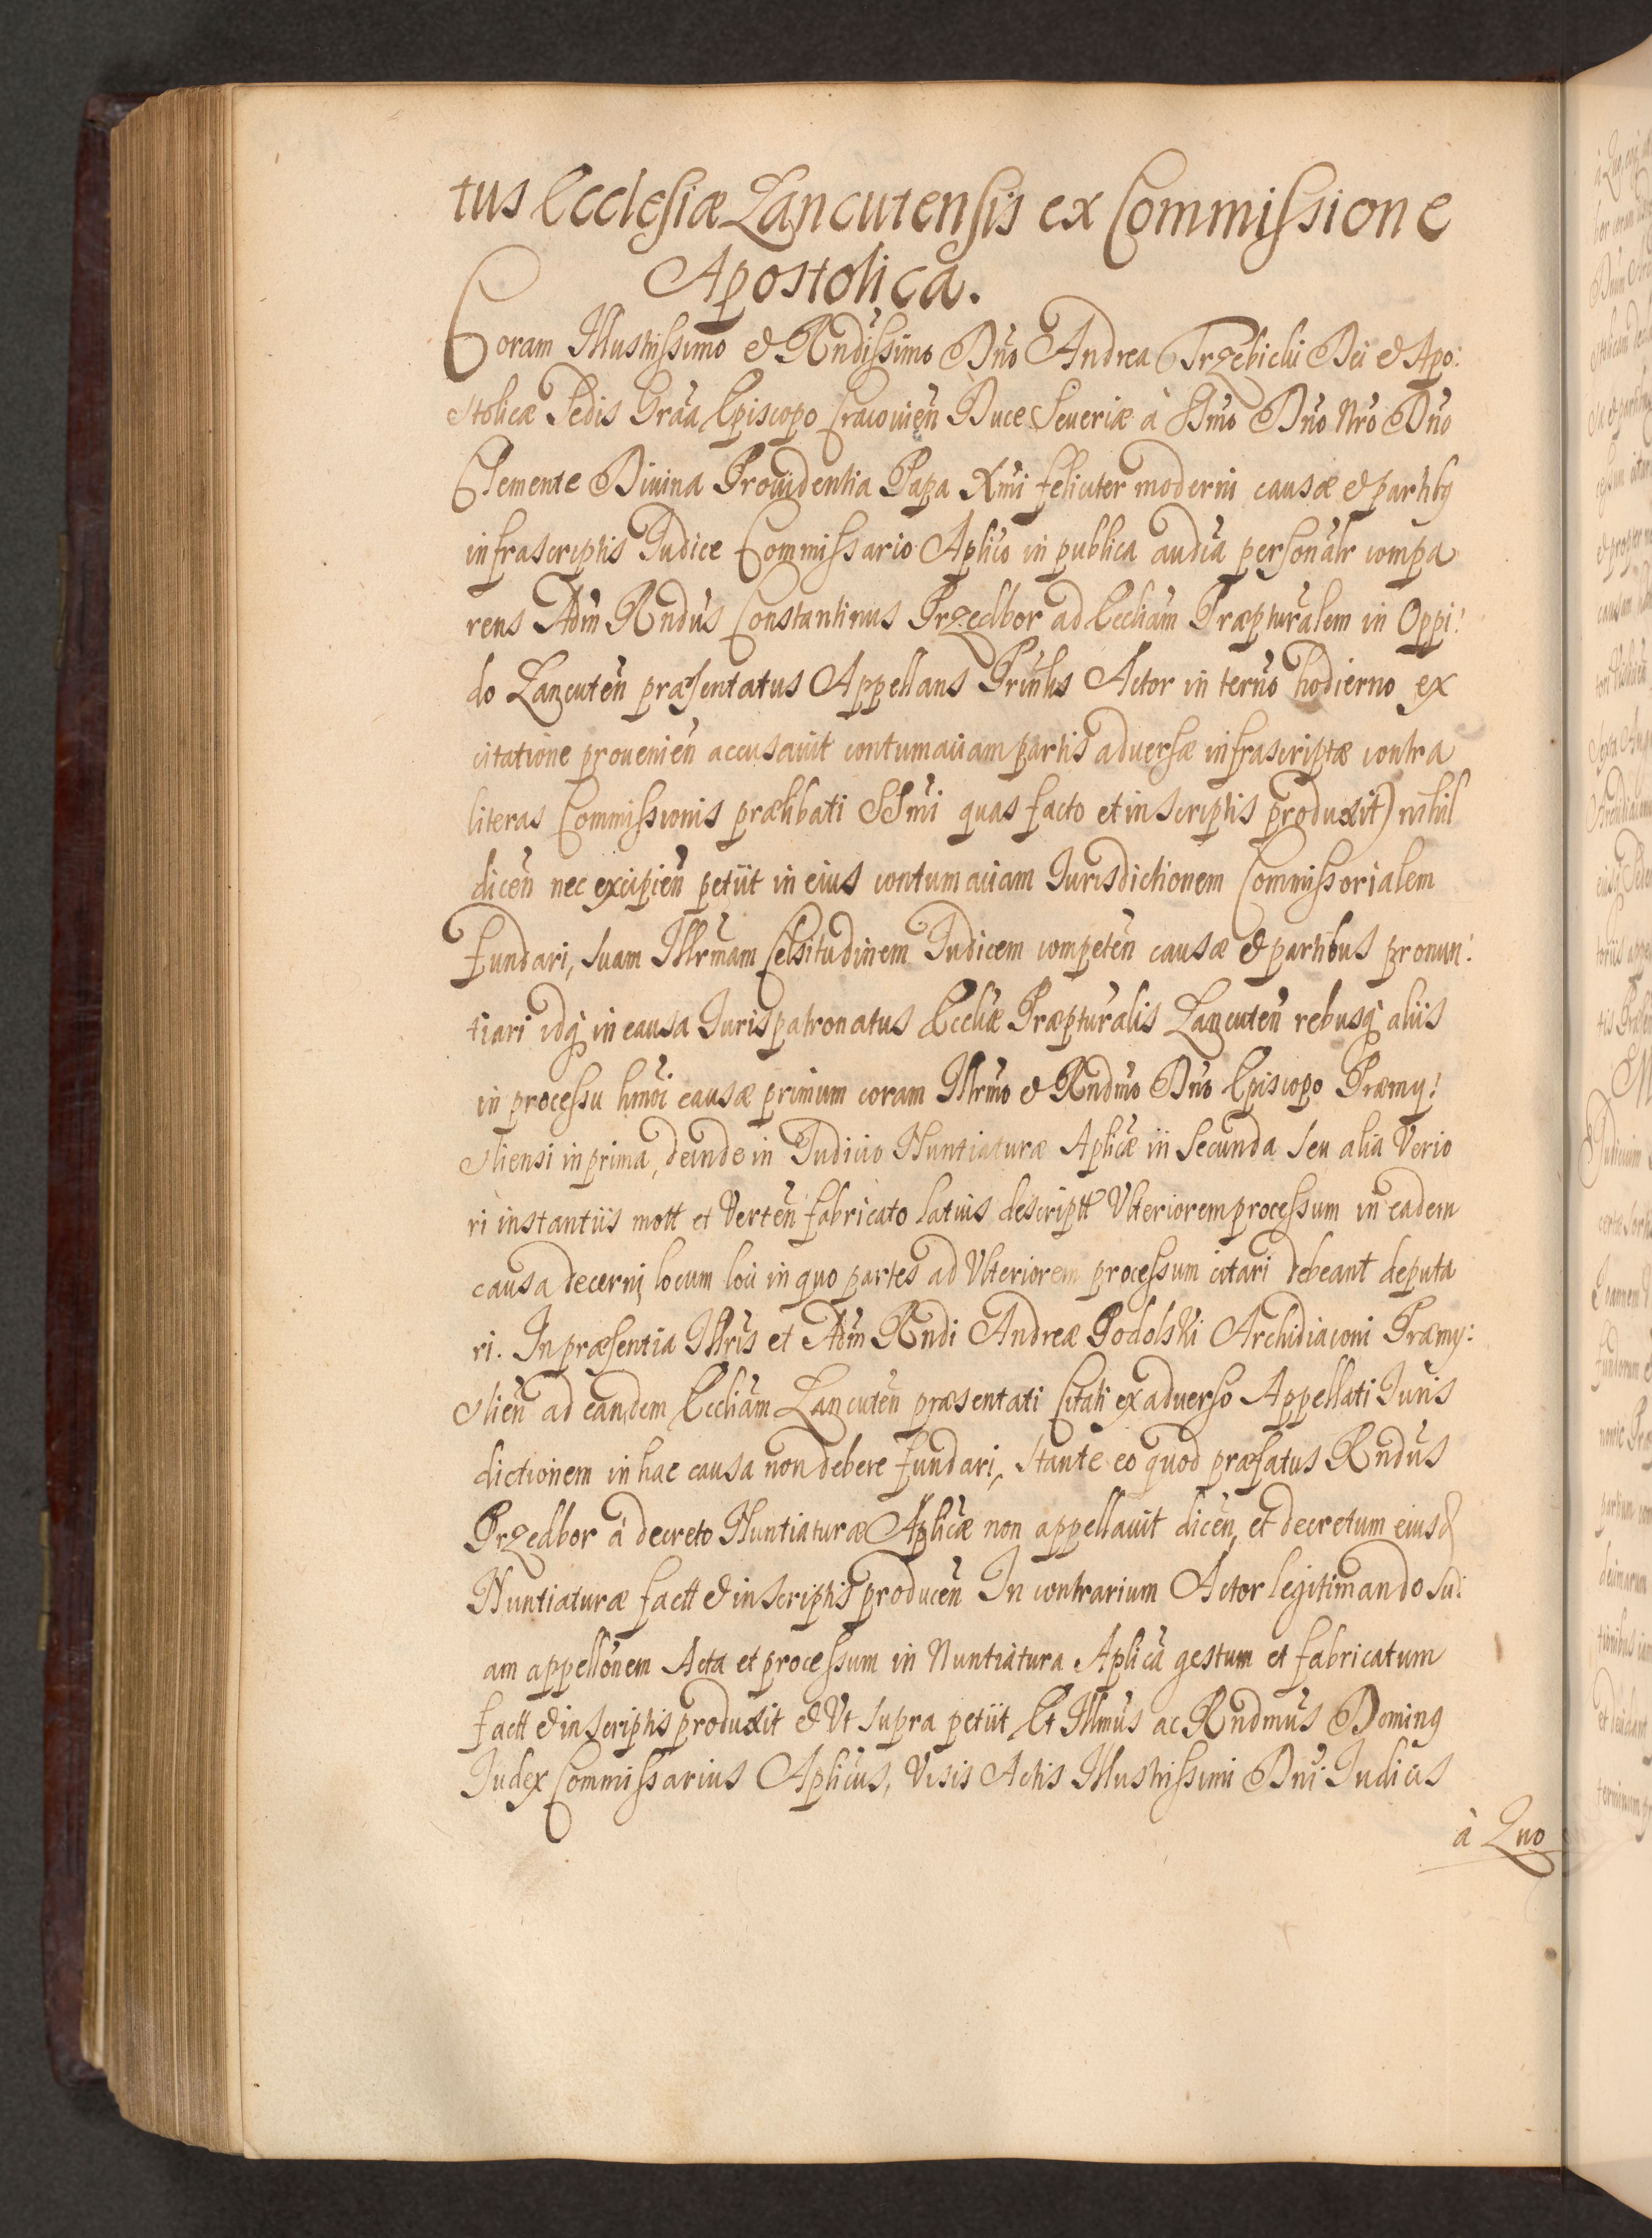 tus Ecclesiæ Lancutensis ex Commissione
Apostolica.
Coram Illustrissimo & Rndissimo Dno Andrea Trzebicki Dei & Apo:
stolicæ Sedis Graa Episcopo Cracouien Duce Seueriæ à SSmo Dno Nro Dno
Clemente Diuina Prouidentia Papa Xmi feliciter moderni causæ & partibq
infrascriptis Iudice Commissario Aplico in publica audia personalr compa
rens Adm Rndus Constantinus Przedbor ad Eccliam Præpturalem in Oppi:
do Lancuten præsentatus Appellans Prinlis Actor in terno hodierno ex
citatione prouenien accusauit contumaciam partis aduersæ infrascriptæ contra
literas Commissionis prælibati SSmi quas facto et in scriptis produxit) nihil
dicen nec excipien petiit in eius contumaciam Iurisdictionem Commissorialem
fundari, suam Illrmam Celsitudinem Iudicem competen causæ & partibus pronun:
tiari idq in causa Iurispatronatus Eccliæ Præpturalis Lancuten rebusq aliis
in processu hmoi causæ primum coram Illrmo & Rndmo Dno Episcopo Præmy:
sliensi in prima, deinde in Iudicio Nuntiaturæ Aplicæ in secunda seu alia Verio
ri instantiis mott et Verten fabricato latius descriptt Vlteriorem processum in eadem
causa decerni, locum loci in quo partes ad Vlteriorem processum citari debeant deputa
ri. In præsentia Illris et Adm Rndi Andreæ Podolski Archidiaconi Præmy:
slien ad eandem Eccliam Lancuten præsentati Citati ex aduerso Appellati Iuris
dictionem in hac causa non debere fundari, stante eo quod præfatus Rndus
Przedbor à decreto Nuntiaturæ Aplicæ non appellauit dicen, et decretum eiusd
Nuntiaturæ factt & in scriptis producen In contrarium Actor legitimando su:
am appellonem Acta et processum in Nuntiatura Aplica gestum et fabricatum
factt & in scriptis produxit & Vt supra petiit Et Illmus ac Rndmus Dominq
Iudex Commissarius Aplicus, Visis Actis Illustrissimi Dni Iudicis
à Quo